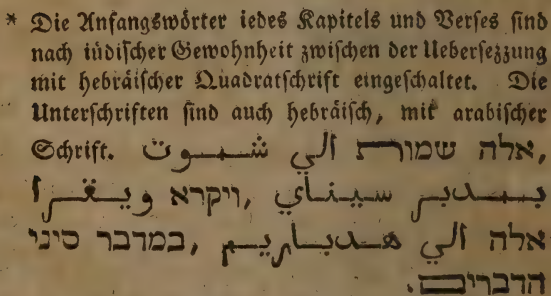 * Die Anfangswörter iedes Kapitels und Verses sind
nach iüdischer Gewohnheit zwischen der Uebersezzung
mit hebräischer Quadratschrift eingeschaltet. Die
Unterschriften sind auch hebräisch, mit arabischer
Schrift. אלה שמות الي شموت,
ויקרא ويقرا, بمدبر سيناي
במדבר סיני, אלה الي هدباريم
הדברים.